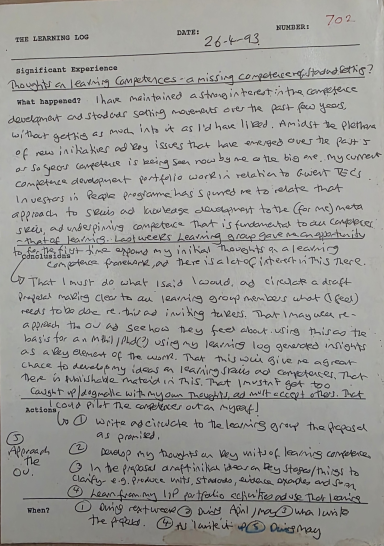 702
THE LEARNING LOG DATE: 26-4-93 NUMBER:
Significant Experience
Thoughts on learning competences - a missing competence of standard setting?
What happened? I have maintained a strong interest in the competence
development and standards setting movements over the past few years,
without getting as much into it as I'd have liked. Amidst the plethora
of new initiatives and key issues that have emerged over the past 5
or so years competence is being seen now by me as the big one. My current
competence development portfolio work in relation to Gwent TECs
Investors in People programme has spurred me to relate that
approach to skills and knowledge development to the (for me) meta
skill, and underpinning competence that is fundamental to all competences
- that of learning. Last weeks Learning group gave me an opportunity
to for the first time expound my initial thoughts on a learning
competence framework, and there is a lot of interest in this there.
Conclusions
That I must do what I said I would, and circulate a draft
proposal making clear to all learning group members what (I feel)
needs to be done re. this and inviting takers. That I may even re-
approach the OU and see how they feel about using this as the
basis for an MPhil/PhD(?) using my learning log generated insights
as a key element of the work. That this will give me a great
chance to develop my ideas on learning skills and competences. That
there is publishable material in this. That I mustn't get too
caught up/dogmatic with my own thoughts, and must accept others. That
I could pilot the competences out on myself!
Actions
① Write and circulate to the learning group the proposal
as promised.
② Develop my thoughts on key units of learning competences
③ In the proposal draft initial ideas on key stages/things to
clarify - e.g. produce units, standards, evidence examples and so on
④ Learn from my IIP portfolio activities and use that learning
⑤ Approach
the
OU.
When? ① During next week ② During April/May ③ When I write
the proposal. ④ As I work it up ⑤ During May